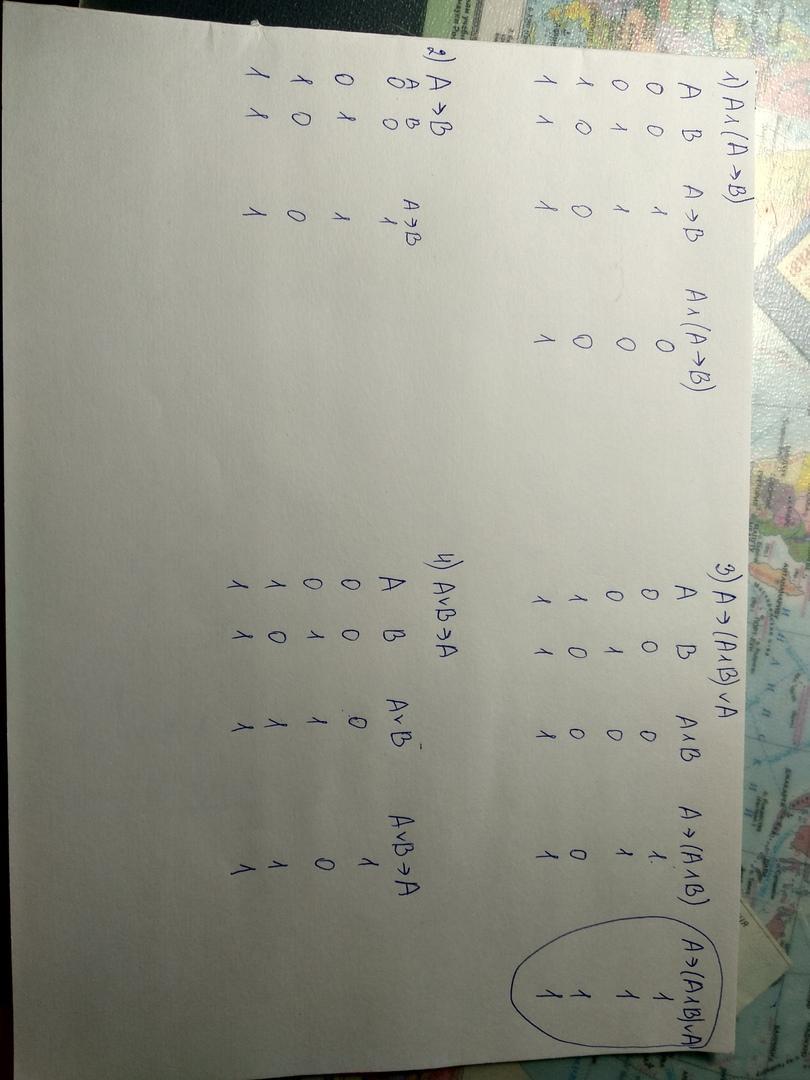 1) A∧(A→B)
A B A→B A∧(A→B)
0 0 1 0
0 1 1 0
1 0 0 0
1 1 1 1
2) A→B
A B A→B
0 0 1
0 1 1
1 0 0
1 1 1
3) A→(A∧B)∨A
A B A∧B A→(A∧B) A→(A∧B)∨A
0 0 0 1 1
0 1 0 1 1
1 0 0 0 1
1 1 1 1 1
4) A∨B→A
A B A∨B A∨B→A
0 0 0 1
0 1 1 0
1 0 1 1
1 1 1 1